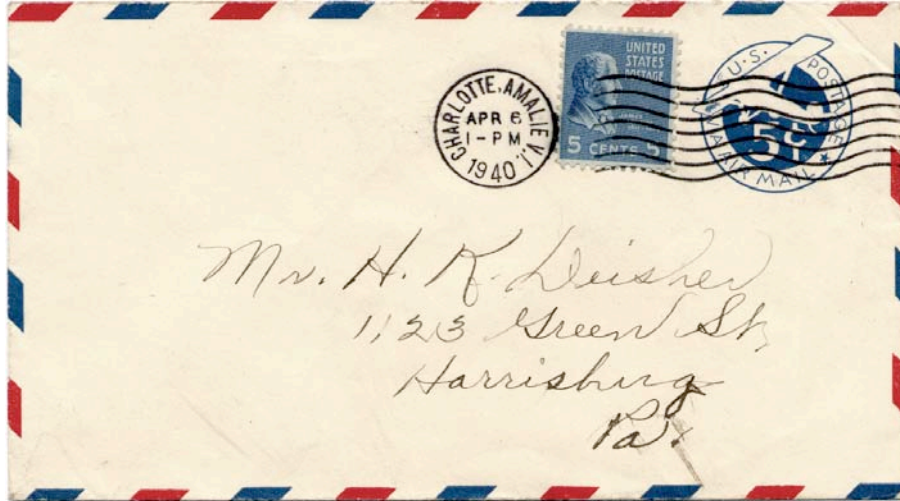 CHARLOTTE AMALIE V.I.
APR 6
1-PM
1940
UNITED
STATES
POSTAGE
5 CENTS 5
U.S. POSTAGE
VIA AIR MAIL
5¢
Mr. H. K. Deisher
1123 Green St.
Harrisburg
Pa.